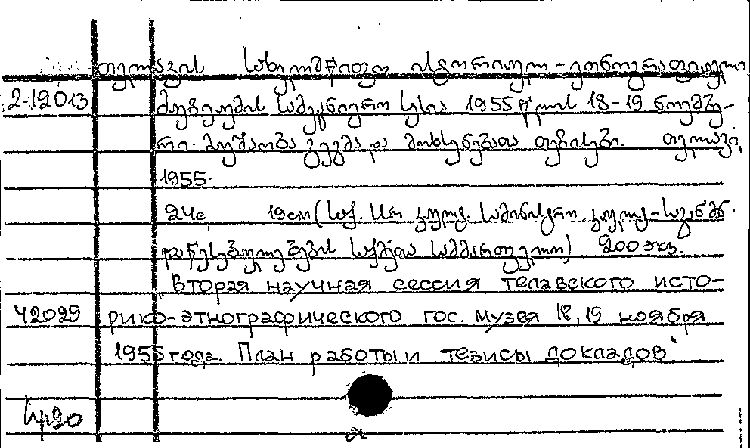 თელავის სახელმწიფო ისტორიულ-ეთნოგრაფიული
2-12013 მუზეუმის სამეცნიერო სესია 1955 წლის 18-19 ნოემბე-
რი. მუშაობა გეგმა და მოხსენებათა თეზისები. თელავი,
1955.
24გ. 19cm (საქ. სსრ კულტ. სამინისტრო. კულტ-საგანმ.
დაწესებულებების საქმეთა სამმართველო) 200 ეკზ.
Вторая научная сессия телавского исто-
42099 рико-этнографического гос. музея 18, 19 ноября
1955 года. План работы и тезисы докладов